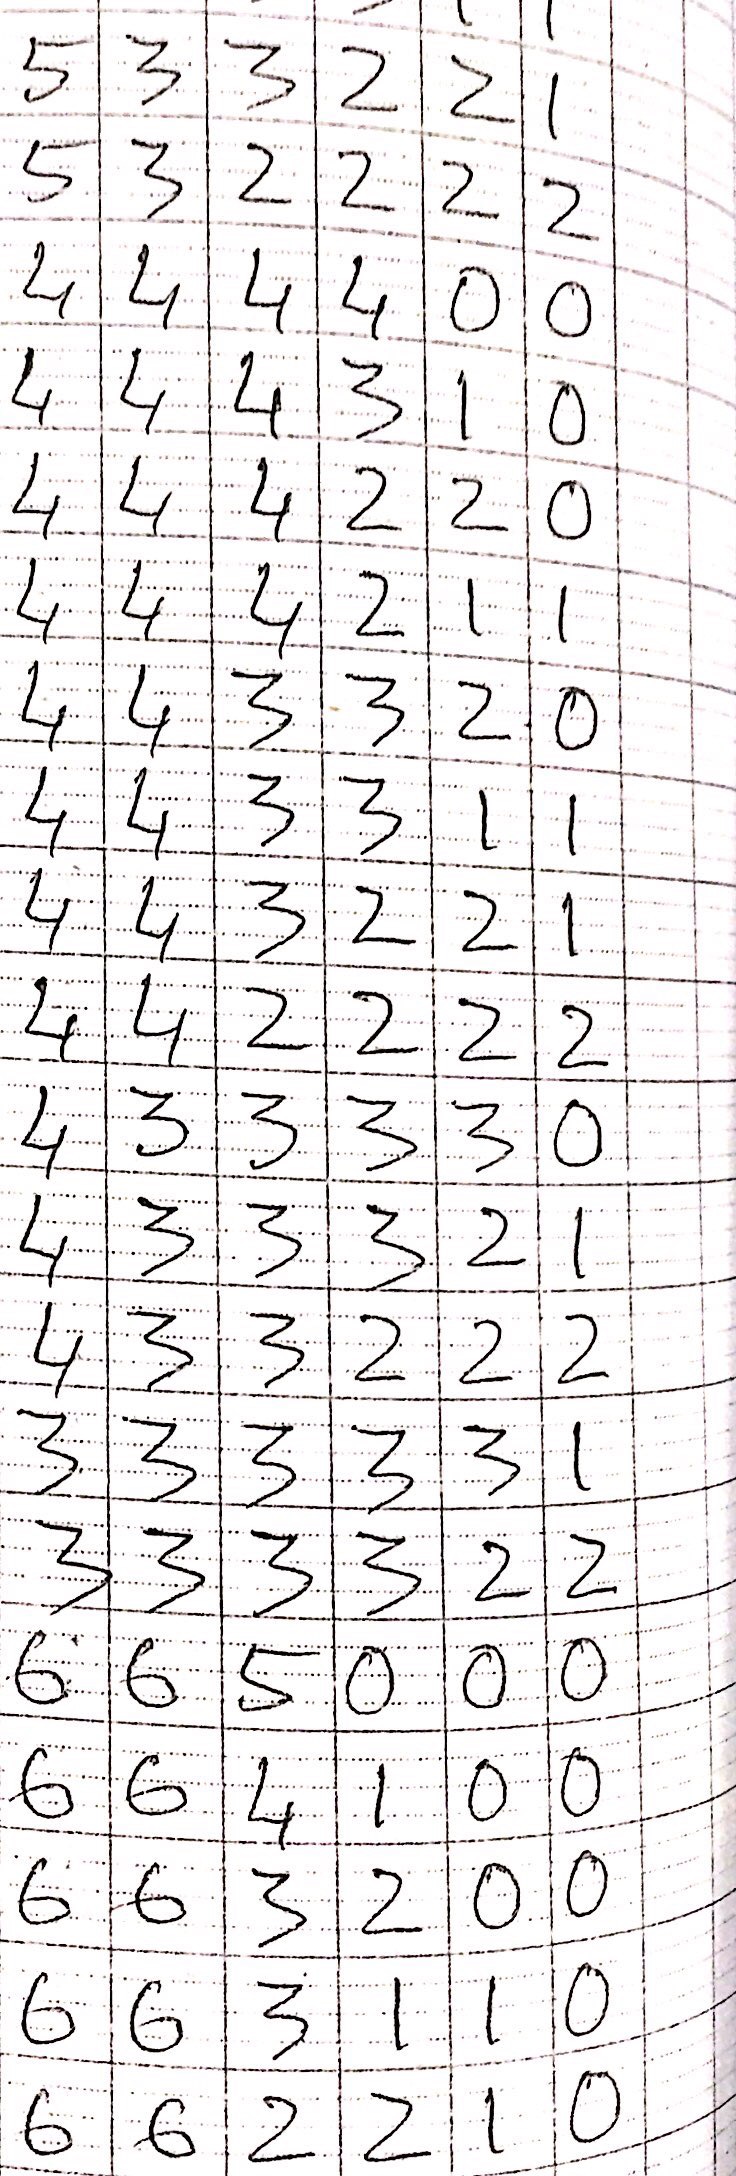 5 3 3 2 2 1
5 3 2 2 2 2
4 4 4 4 0 0
4 4 4 3 1 0
4 4 4 2 2 0
4 4 4 2 1 1
4 4 3 3 2 0
4 4 3 3 1 1
4 4 3 2 2 1
4 4 2 2 2 2
4 3 3 3 3 0
4 3 3 3 2 1
4 3 3 2 2 2
3 3 3 3 3 1
3 3 3 3 2 2
6 6 5 0 0 0
6 6 4 1 0 0
6 6 3 2 0 0
6 6 3 1 1 0
6 6 2 2 1 0